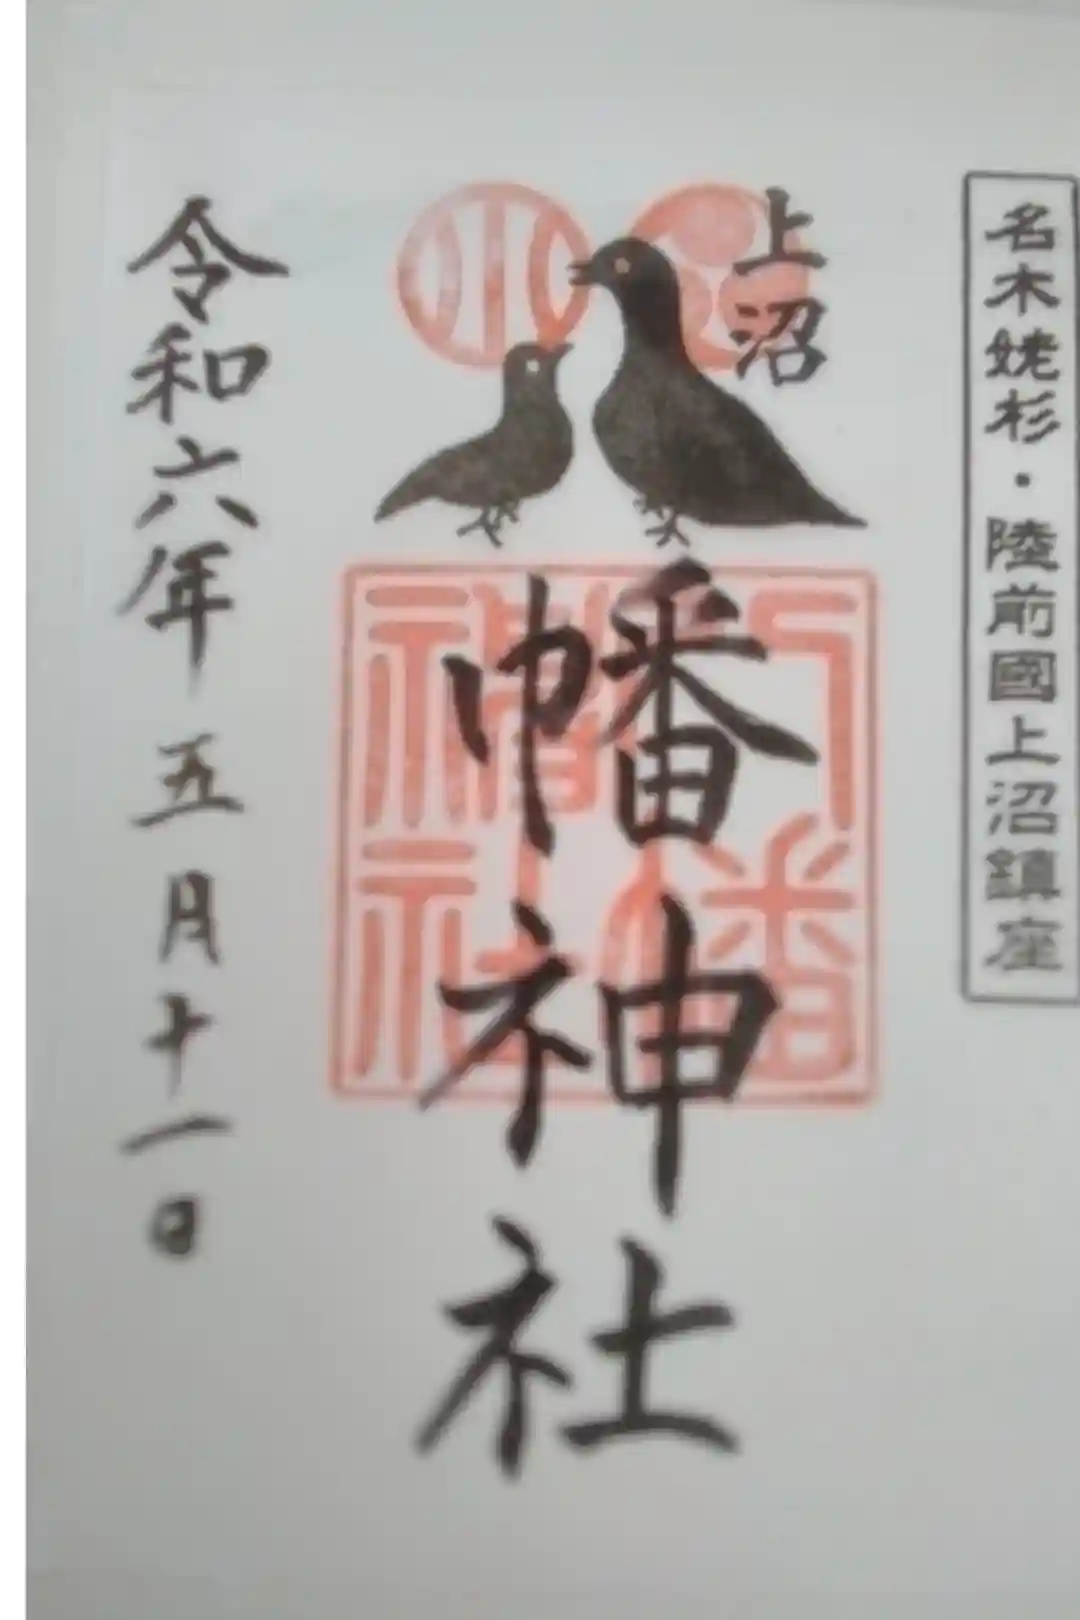 名木姥杉・陸前國上沼鎮座
上沼
幡神社
令和六年五月十一日